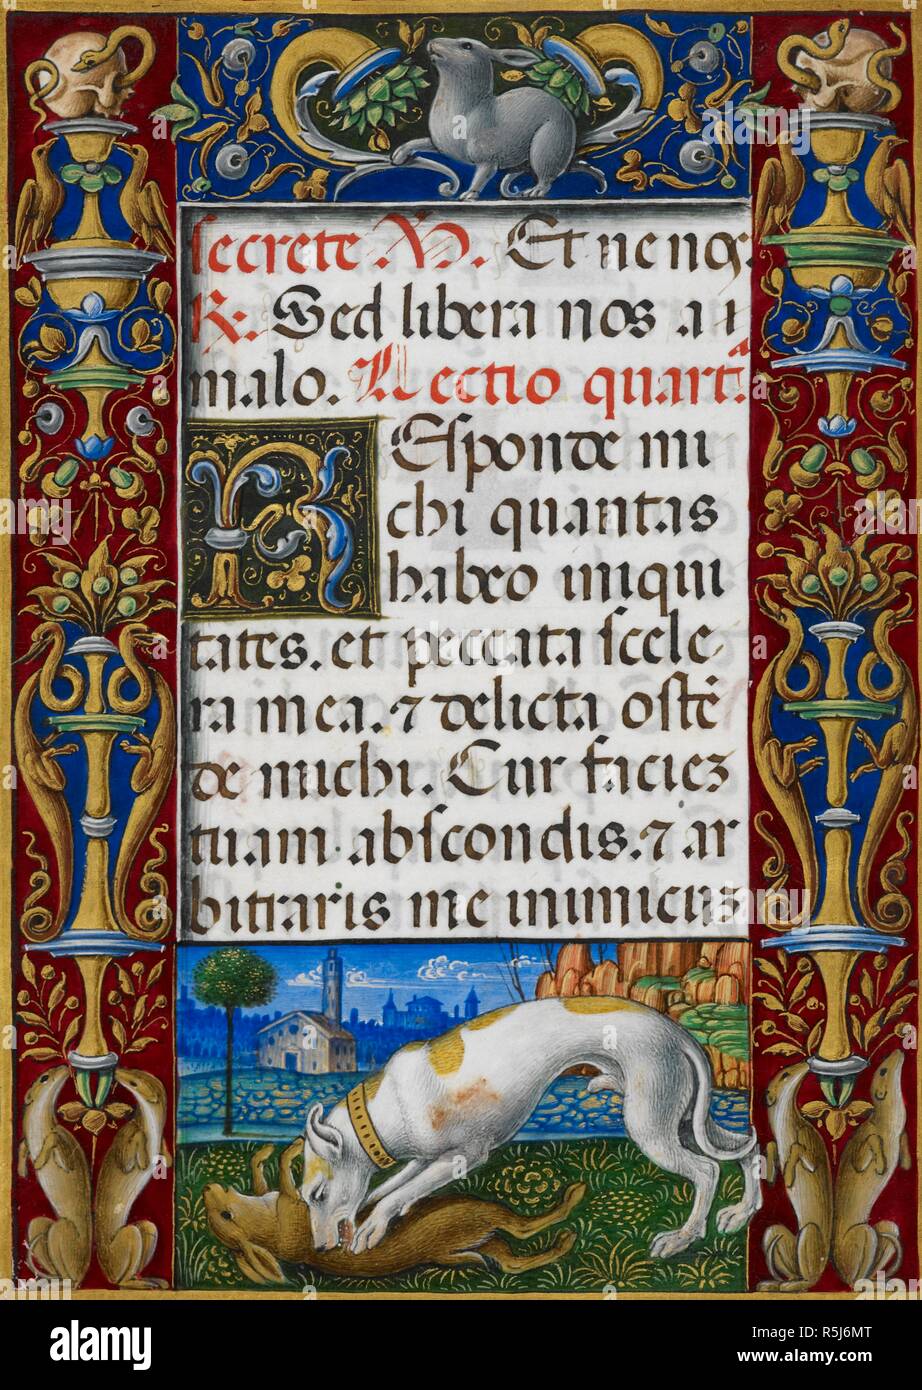 secrete. V. Et ne nos.
R. Sed libera nos a
malo. Lectio quarta.
REsponde mi
chi quantas
habeo iniqui
tates. et peccata scele
ra mea. ⁊ delicta ostē
de michi. Cur faciez
tuam abscondis. ⁊ ar
bitraris me inimicuz
alamy
Image ID: R5J6MT
www.alamy.com